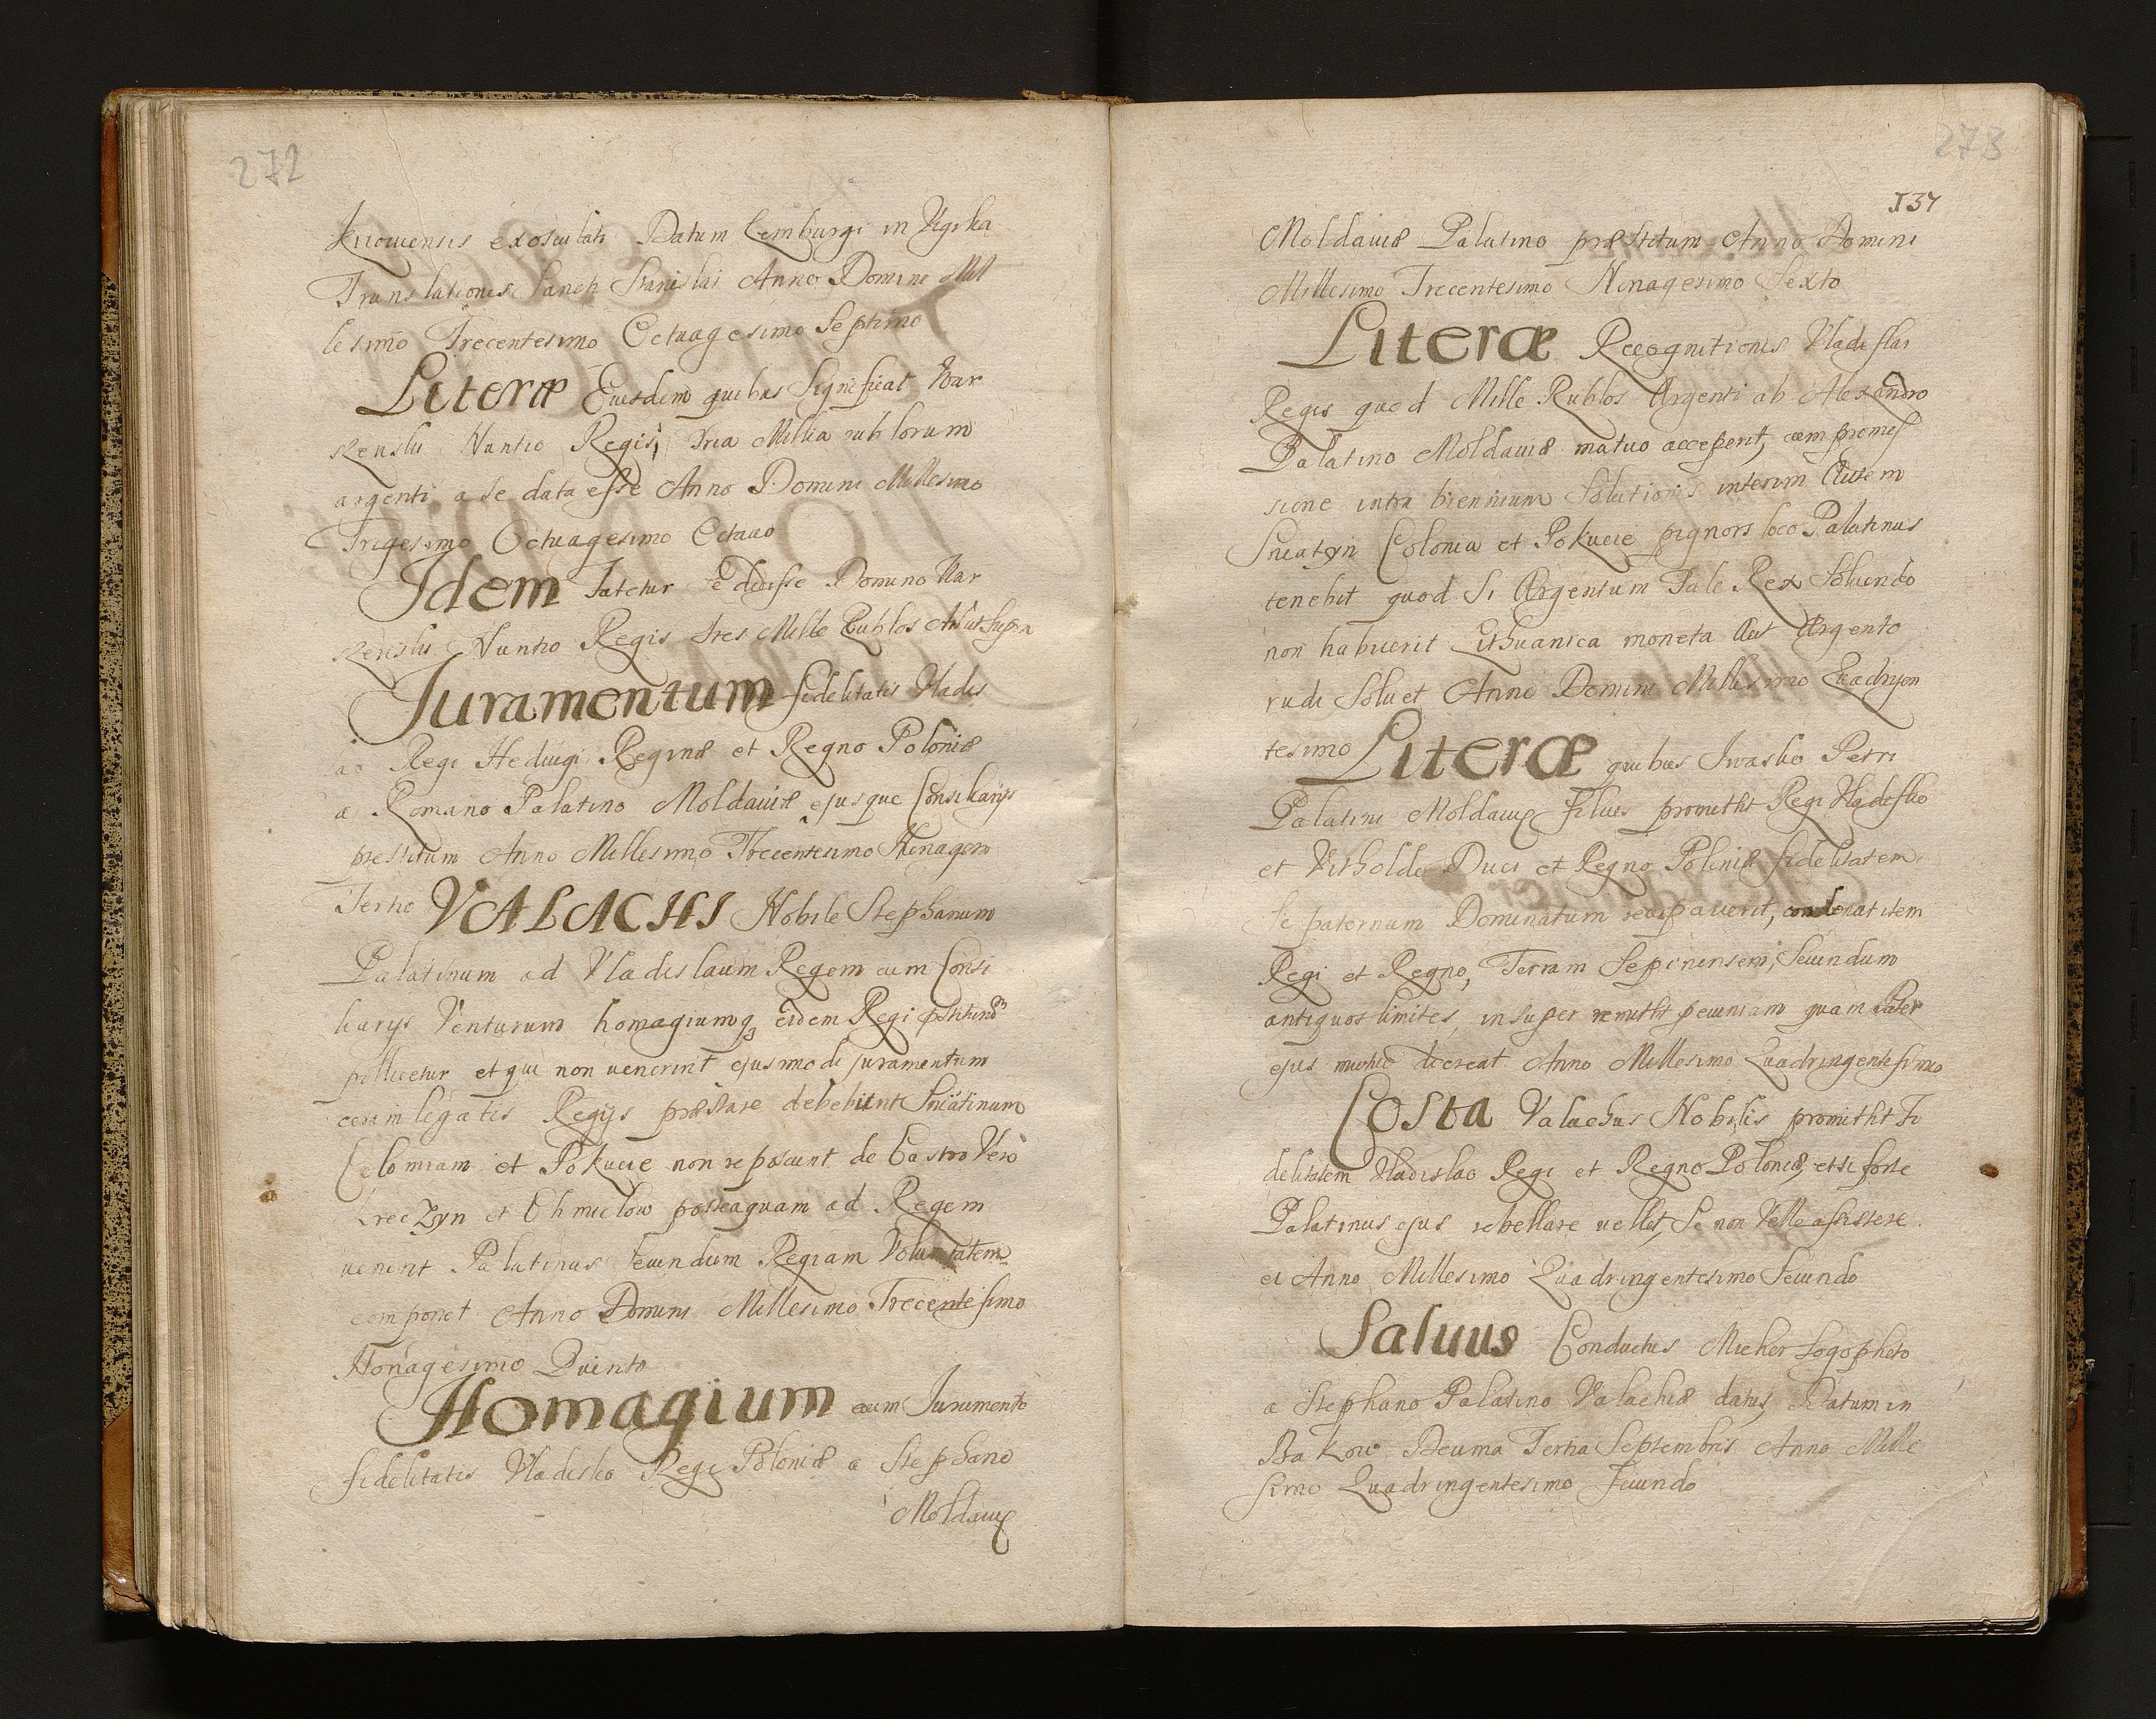 272
Kiiowensis exosculati Datum Lemburgi in Vigilia
Translationis Sancti Stanislai Anno Domine Mil
lesimo Trecentesimo Octuagesimo Septimo
Literæ Eiusdem quibus Significat Nar
Regis, tria Millia rublorum
argenti a se data esse Anno Domini Millesimo
Trigesimo Octuagesimo Octauo
Idem fatetur se dedisse Domino Nar
Nuntio Regis tres Mille Rublos Supra
Juramentum fidelitatis Vladis
ao Regi Hedvigi Reginæ et Regno Poloniæ
a Romano Palatino Moldauiæ ejusque Consiliarijs
prestitum Anno Millesimo Trecentesimo Nonagesm
Tertio VALACHI Nobile Stephanum
Palatinum ad Vladislaum Regem cum Consi
liarijs Venturum homagiumq3 eidem Regi
pollicetur et qui non venerint ejusmodi juramentum
coram legatis Regijs præstare debebunt Sniatinum
Colomiam et Pokucie non reposcunt de Castro Vero
et Chmielow posteaquam ad Regem
venerit Palatinus secundum Regiam Voluntatem
componet Anno Domini Millesimo Trecentesimo
Nonagesimo Quinto
Homagium cum Juramento
fidelitatis Vladislao Regi Poloniæ a Stephano
Moldauiæ
273
137
Moldauiæ Palatino præstitum Anno Domini
Millesimo Trecentesimo Nonagesimo Sexto
Literæ Recognitionis Vladislai
Regis quod Mille Rublos Argenti ab Alexandro
Palatino Moldauiæ mutuo acceperit, cum promis
sione intra biennium Solutionis interim Autem
Sniatyn Colonia et Pokucie pignoris loco Palatinus
tenebit quod Si Argentum Tale Rex Soluendo
non habuerit Lithuanica moneta Aut Argento
rudi Soluet Anno Domini Millesimo Quadrigen
tesimo Literæ quibus Iwasko Petri
Palatini Moldauiæ filius promittit Regi Vladislao
et Vitholdo Duci et Regno Poloniæ fidelitatem
Si paternum Dominatum recupauerit, item
Regi et Regno, Terram Sepinensem, Secundum
antiquos limites, insuper remittit pecuniam quam Pater
ejus dicreat Anno Millesimo Quadringentesimo
Costa Valachus Nobilis promittit Fi
delitatem Vladislao Regi et Regno Poloniæ, et si forte
Palatinus ejus rebellare uellet, Se non Velle assistere
ei Anno Millesimo Quadringentesimo Secundo
Saluus Conductus Logopheto
a Stephano Palatino Valachiæ datus, Datum in
Bakow Decima Tertia Septembris Anno Mille
simo Quadringentesimo Secundo